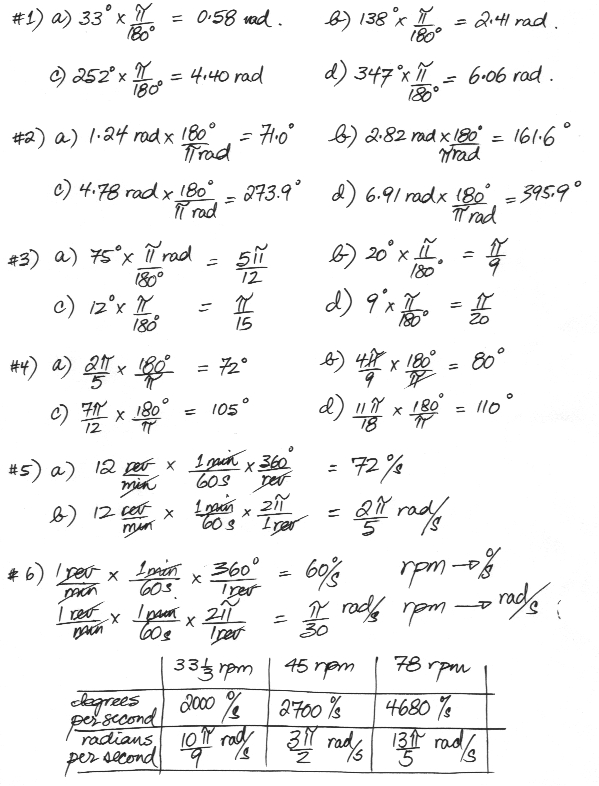 #1) a) 33° × π/180° = 0.58 rad. b) 138° × π/180° = 2.41 rad.
c) 252° × π/180° = 4.40 rad d) 347° × π/180° = 6.06 rad.
#2) a) 1.24 rad × 180°/π rad = 71.0° b) 2.82 rad × 180°/π rad = 161.6°
c) 4.78 rad × 180°/π rad = 273.9° d) 6.91 rad × 180°/π rad = 395.9°
#3) a) 75° × π rad/180° = 5π/12 b) 20° × π/180° = π/9
c) 12° × π/180° = π/15 d) 9° × π/180° = π/20
#4) a) 2π/5 × 180°/π = 72° b) 4π/9 × 180°/π = 80°
c) 7π/12 × 180°/π = 105° d) 11π/18 × 180°/π = 110°
#5) a) 12 rev/min × 1 min/60 s × 360°/rev = 72°/s
b) 12 rev/min × 1 min/60 s × 2π/1 rev = 2π/5 rad/s
#6) 1 rev/min × 1 min/60 s × 360°/1 rev = 6°/s rpm → °/s
1 rev/min × 1 min/60 s × 2π/1 rev = π/30 rad/s rpm → rad/s
33 1/3 rpm 45 rpm 78 rpm
degrees per second 2000 °/s 2700 °/s 4680 °/s
radians per second 10π/9 rad/s 3π/2 rad/s 13π/5 rad/s